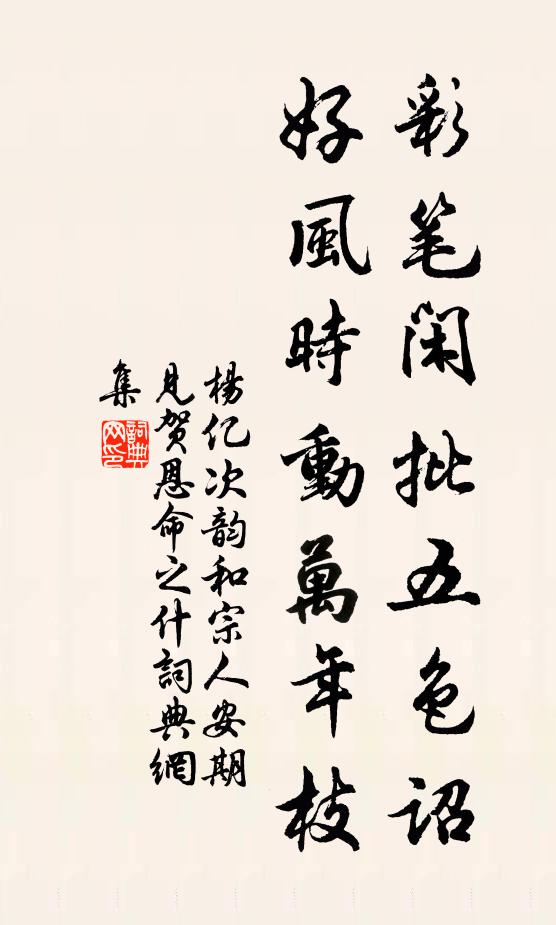 彩笔闲批五色詔
好風時動萬年枝
楊亿次韵和宗人安期
見贺恩命之什詞典網
集
詞典
网印